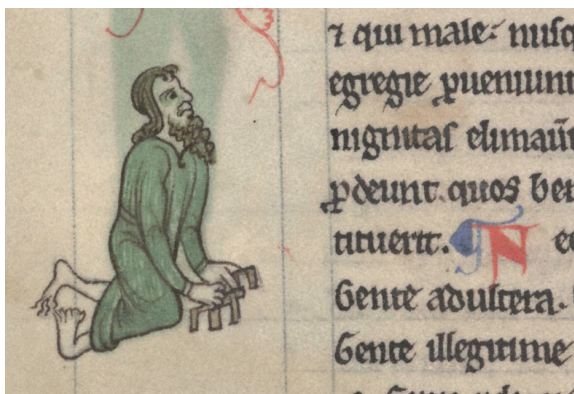 ⁊ qui male. nusq
egregie ꝓueniunt
nignitas elimaūt
ꝓdeunt. quos ben
tituerit. N ec
Gente adultera.
Gente illegitime